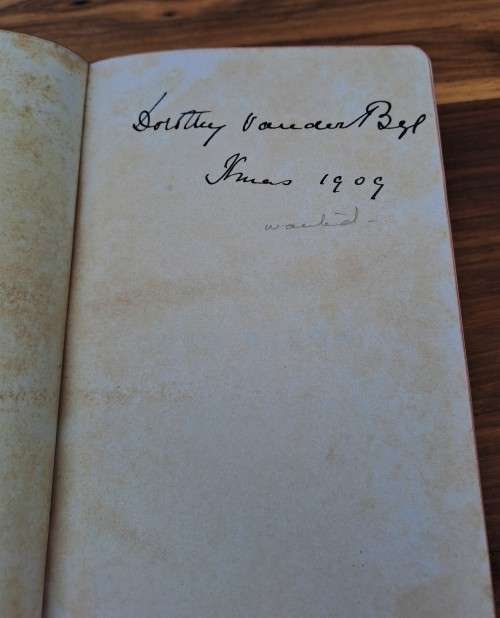 Dorothy Vander Byl
Xmas 1909
wanted